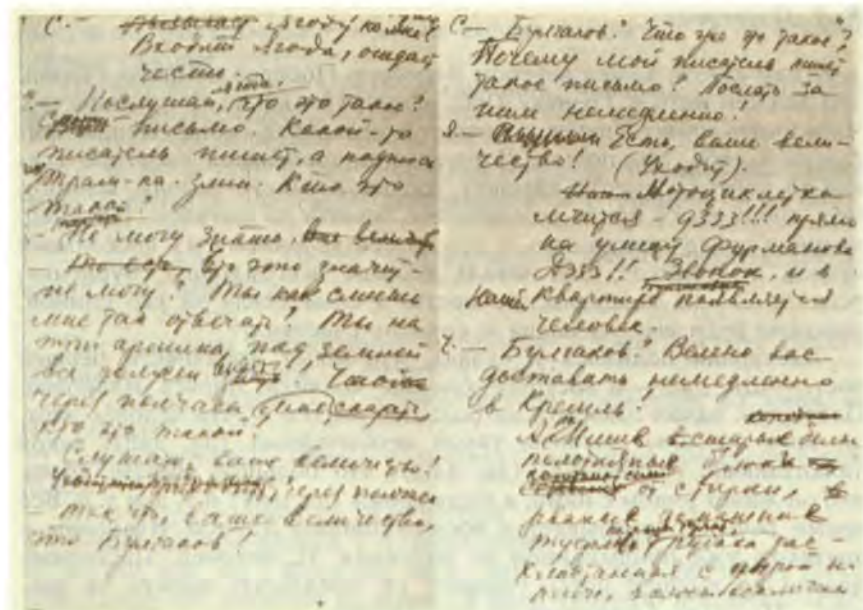 С. –          Ягоду ко мне!
Входит Ягода, отдает
честь.
– Послушай, Ягода, что это такое?
письмо. Какой-то
писатель пишет, а подпись
Трам-па-злин. Кто это
такой?
– Не могу знать.
– Что это значит –
не могу? Ты как смеешь
мне так отвечать? Ты на
три аршина под землей
все должен видеть!
через полчаса мне сказать,
кто это такой!
– Слушаю, ваше величество!
через полчаса
– Так что, ваше величество,
это Булгаков!
С. – Булгаков? Что это такое?
Почему мой писатель пишет
такое письмо? Послать за
ним немедленно!
Я. – Есть, ваше вели-
чество! (Уходит).
Мотоциклетка
мчится – дззз!!! прямо
на улицу Фурманова
Дззз!! Звонок, и в
нашей квартире появляется
человек
Ч. – Булгаков? Велено вас
доставить немедленно
в Кремль.
А на Мише старые белые
полотняные брюки
от стирки,
рваные домашние
туфли,        рубаха рас-
хлястанная с дырой на
плече, волосы всклочены